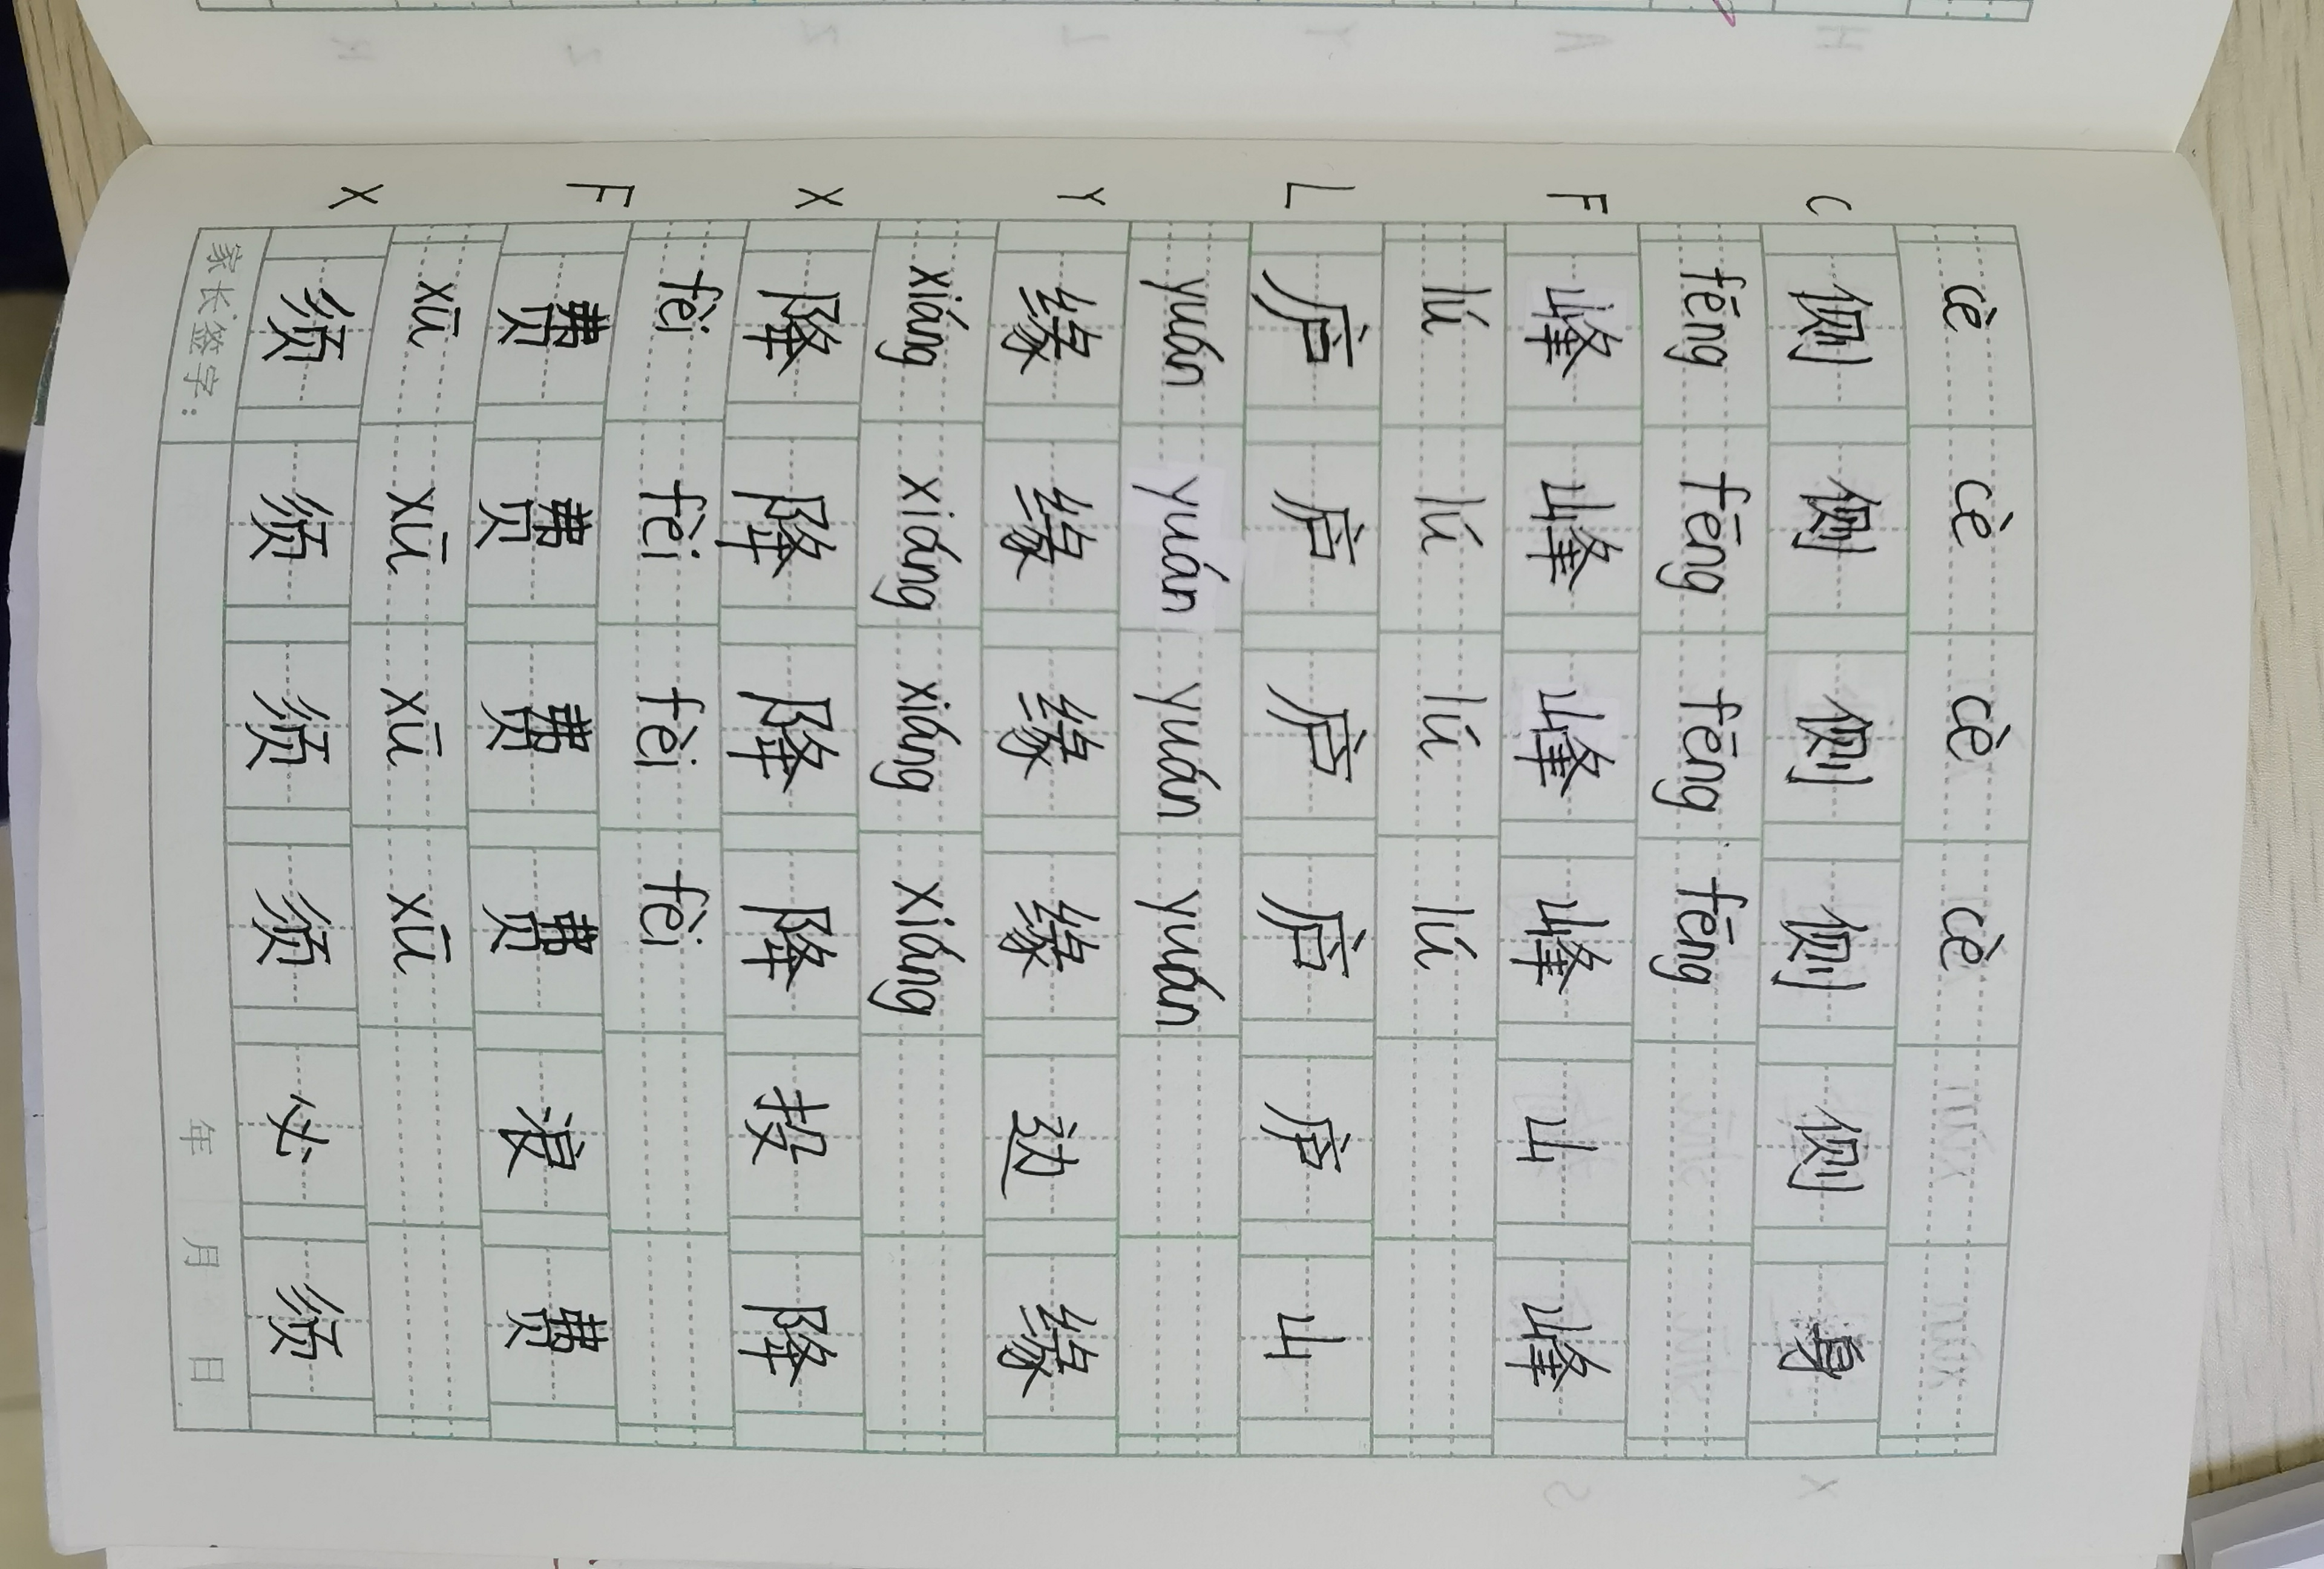 cè cè cè cè
C 侧 侧 侧 侧 侧 身
fēng fēng fēng fēng
F 峰 峰 峰 峰 山 峰
lú lú lú lú
L 庐 庐 庐 庐 庐 山
yuán yuán yuán yuán
Y 缘 缘 缘 缘 边 缘
xiáng xiáng xiáng xiáng
X 降 降 降 降 投 降
fèi fèi fèi fèi
F 费 费 费 费 浪 费
xū xū xū xū
X 须 须 须 须 必 须
家长签字: 年 月 日